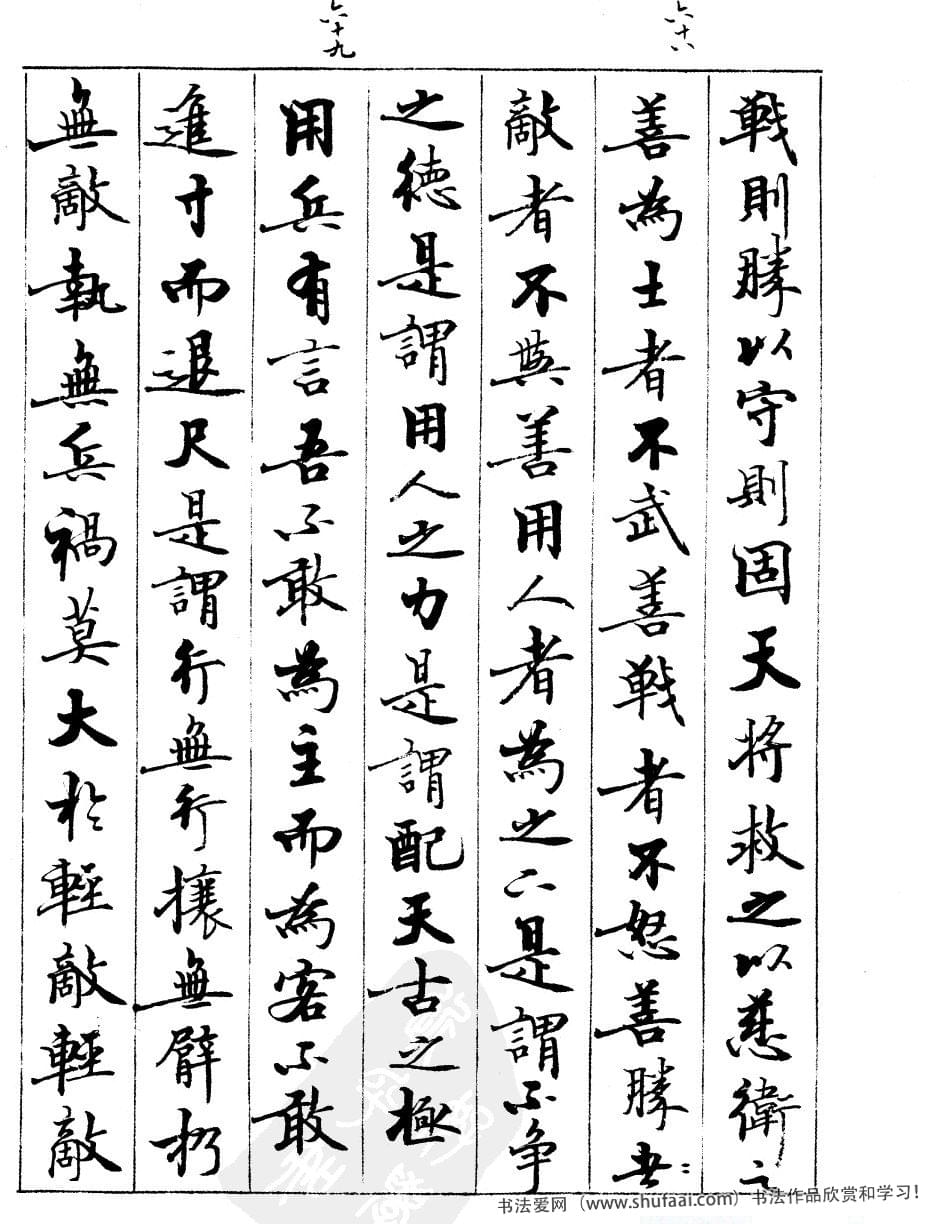 六十八
戰則勝以守則固天將救之以慈衛之
善為士者不武善戰者不怒善勝
敵者不與善用人者為之下是謂不争
六十九
之德是謂用人之力是謂配天古之極
用兵有言吾不敢為主而為客不敢
進寸而退尺是謂行無行攘無臂扔
無敵執無兵禍莫大於輕敵輕敵
书法爱网（www.shufaai.com）书法作品欣赏和学习！